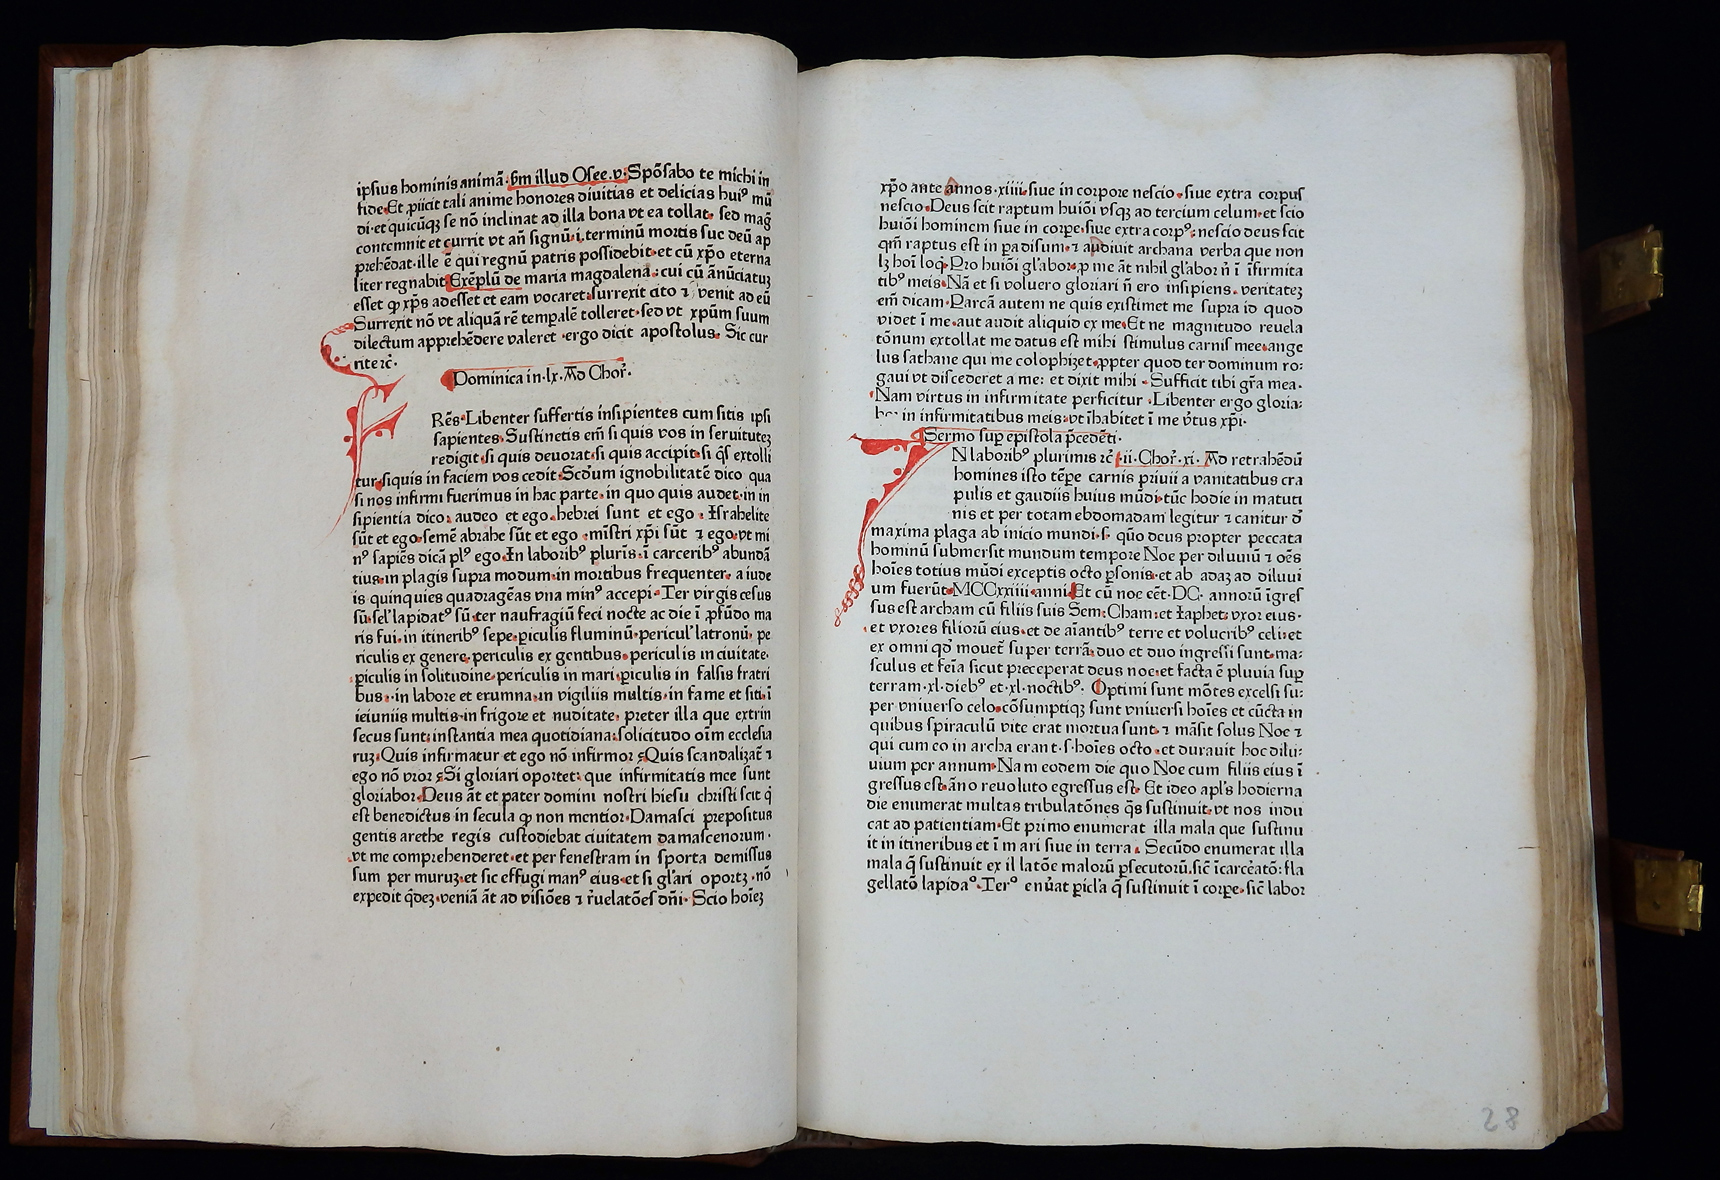 ipsius hominis animā. ẜm illud Osee.v: Spōsabo te michi in
fide. Et ꝓiicit tali anime honores diuitias et delicias huiꝰ mū
di. et quicūqꝫ se nō inclinat ad illa bona vt ea tollat. sed mag̃
contemnit et currit vt añ signū .i. terminū mortis sue deū ap
prehēdat. ille ē qui regnū patris possidebit. et cū xp̄o eterna
liter regnabit Exēplū de maria magdalena. cui cū ānūciatuꝫ
esset ꝙ xp̄s adesset et eam vocaret. surrexit cito ⁊ venit ad eū
Surrexit nō vt aliquā rē temꝑalē tolleret. sed vt xp̄um suum
dilectum apprehēdere valeret .ergo dicit apostolus. Sic cur
rite ⁊c̄.
Dominica in .lx. Ad Chor̄.
FRēs. Libenter suffertis insipientes cum sitis ipsi
sapientes. Sustinetis em̄ si quis vos in seruituteꝫ
redigit. si quis deuorat. si quis accipit. si q̄s extolli
tur. siquis in faciem vos cedit. Scd'um ignobilitatē dico qua
si nos infirmi fuerimus in hac parte. in quo quis audet. in in
sipientia dico. audeo et ego. hebrei sunt et ego . Israhelite
sūt et ego. semē abrahe sūt et ego .mīstri xp̄i sūt ⁊ ego. vt mi
nꝰ sapiēs dicā plꝰ ego. In laboribꝰ plurīs. ī carceribꝰ abundā
tius. in plagis supra modum. in mortibus frequenter. a iude
is quinquies quadragēas vna minꝰ accepi. Ter virgis cesus
sū. sel' lapidatꝰ sū. ter naufragiū feci nocte ac die ī ꝓfūdo ma
ris fui. in itineribꝰ sepe. ꝑiculis fluminū. pericul' latronū. pe
riculis ex genere. periculis ex gentibus. periculis in ciuitate.
ꝑiculis in solitudine. periculis in mari. ꝑiculis in falsis fratri
bus. .in labore et erumna. in vigiliis multis. in fame et siti. ī
ieiuniis multis. in frigore et nuditate. preter illa que extrin
secus sunt: instantia mea quotidiana: solicitudo oīm ecclesia
ruꝫ. Quis infirmatur et ego nō infirmor? Quis scandalizat̄ ⁊
ego nō vror? Si gloriari oportet: que infirmitatis mee sunt
gloriabor. Deus āt et pater domini nostri hiesu christi scit q̄
est benedictus in secula ꝙ non mentior. Damasci prepositus
gentis arethe regis custodiebat ciuitatem damascenorum.
vt me comprehenderet. et per fenestram in sporta demissus
sum per muruꝫ. et sic effugi manꝰ eius. et si gl'ari oportꝫ .nō
expedit q̄deꝫ. veniā āt ad visiōes ⁊ r̄uelatōes dn̄i. Scio hoīeꝫ
xp̄o ante annos .xiiii. siue in corpore nescio. siue extra corpus
nescio. Deus scit raptum huiōi vsqꝫ ad tercium celum. et scio
huiōi hominem siue in corꝑe. siue extra corpꝰ: nescio deus scit
qm̄ raptus est in ꝑadisum. ⁊ audiuit archana verba que non
lꝫ hoī loq̄. Pro huiōi gl'abor. ꝓ me āt nihil gl'abor n̄ ī īfirmita
tibꝰ meis. Nā et si voluero gloriari n̄ ero insipiens. veritateꝫ
em̄ dicam. Parcā autem ne quis existimet me supra id quod
videt ī me. aut audit aliquid ex me. Et ne magnitudo reuela
tōnum extollat me datus est mihi stimulus carnis mee. ange
lus sathane qui me colophizet. ꝓpter quod ter dominum ro:
gaui vt discederet a me: et dixit mihi . Sufficit tibi gr̄a mea.
Nam virtus in infirmitate perficitur . Libenter ergo gloria:
bor in infirmitatibus meis. vt īhabitet ī me v̄tus xp̄i.
Sermo suꝑ epistola p̄cedēti.
IN laboribꝰ plurimis ⁊c̄ .ii. Chor̄. xi. Ad retrahēdū
homines isto tēꝑe carnis priuii a vanitatibus cra
pulis et gaudiis huius mūdi. tūc hodie in matuti
nis et per totam ebdomadam legitur ⁊ canitur đ
maxima plaga ab inicio mundi. s. quō deus propter peccata
hominū submersit mundum tempore Noe per diluuiū ⁊ oēs
hoīes totius mūdi exceptis octo ꝑsonis. et ab adaꝫ ad diluui
um fuerūt. MCCxxiiii. anni. Et cū noe eēt .DC. annorū īgres
sus est archam cū filiis suis Sem: Cham: et Iaphet: vxor eius.
.et vxores filiorū eius. et de aīantibꝰ terre et volucribꝰ celi: et
ex omni qđ mouet̄ super terrā. duo et duo ingressi sunt. ma:
sculus et feīa sicut preceperat deus noe. et facta ē pluvia suꝑ
terram .xl. diebꝰ et .xl. noctibꝰ. Optimi sunt mōtes excelsi su:
per vniuerso celo. cōsumptiqꝫ sunt vniuersi hoīes et cūcta in
quibus spiraculū vite erat mortua sunt. ⁊ māsit solus Noe ⁊
qui cum eo in archa erant. s. hoīes octo. et durauit hoc dilu:
uium per annum. Nam eodem die quo Noe cum filiis eius ī
gressus est. āno reuoluto egressus est. Et ideo apl's hodierna
die enumerat multas tribulatōnes q̄s sustinuit. vt nos indu
cat ad patientiam. Et primo enumerat illa mala que sustinu
it in itineribus et ī mari siue in terra. Secūdo enumerat illa
mala q̄ sustinuit ex illatōe malorū ꝑsecutorū. sic̄ īcarc̄eatō: fla
gellatō lapidaº. Terº enūat ꝑicl'a q̄ sustinuit ī corꝑe. sic̄ labor
28